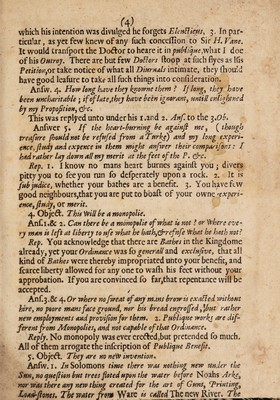 (4)
which his intention was divulged he forgets Elenctions, 3. In par-
ticular, as yet few knew of any such concession to Sir H. Vane.
It would transport the Doctor to hear it in publique, what I doe
of his Outroy. There are but few Doctors stoop at such flyes as his
Petition, or take notice of what all Diurnals intimate, they should
have good leasure to take all such things into consideration.
Answ. 4. How long have they knowne them? If long, they have
been uncharitable; if of late, they have been ignorant, untill enlightened
by my Proposition, &c.
This was replyed unto under his 1. and 2. Ans. to the 3. Ob.
Answer 5. If the heart-burning be against me, (though
treasure should not be refused from a Turke) and my long experi-
ence, study and expence in them might answer their comparisons: I
had rather lay down all my merit at the feet of the P. &c.
Rep. 1. I know no mans heart burnes against you; divers
pitty you to see you run so desperately upon a rock. 2. It is
sub judice, whether your bathes are a benefit. 3. You have few
good neighbours, that you are put to boast of your owne experi-
ence, study, or merit.
4. Object. This will be a monopolie.
Ans. 1. & 2. Can there be a monopolie of what is not? or where eve-
ry man is left at liberty to use what he hath, & refuse what he hath not?
Rep. You acknowledge that there are Bathes in the Kingdome
already, yet your Ordinance was so generall and exclusive, that all
kind of Bathes were thereby impropriated unto your benefit, and
scarce liberty allowed for any one to wash his feet without your
approbation. If you are convinced so far, that repentance will be
accepted.
Ans. 3. & 4. Or where no sweat of any mans brow is exacted without
hire, no poore mans face ground, nor his bread engrossed, but rather
new employments and provision for them. 2. Publique works are dif-
ferent from Monopolies, and not capable of that Ordinance.
Reply. No monopoly was ever erected, but pretended so much.
All of them arrogate the inscription of Publique Benefit.
5. Object. They are no new invention.
Answ. 1. In Solomons time there was nothing new under the
Sun, no question but trees floted upon the water before Noahs Arke,
nor was there any new thing created for the art of Guns, Printing,
Load-stones. The water from Ware is called The new River. The